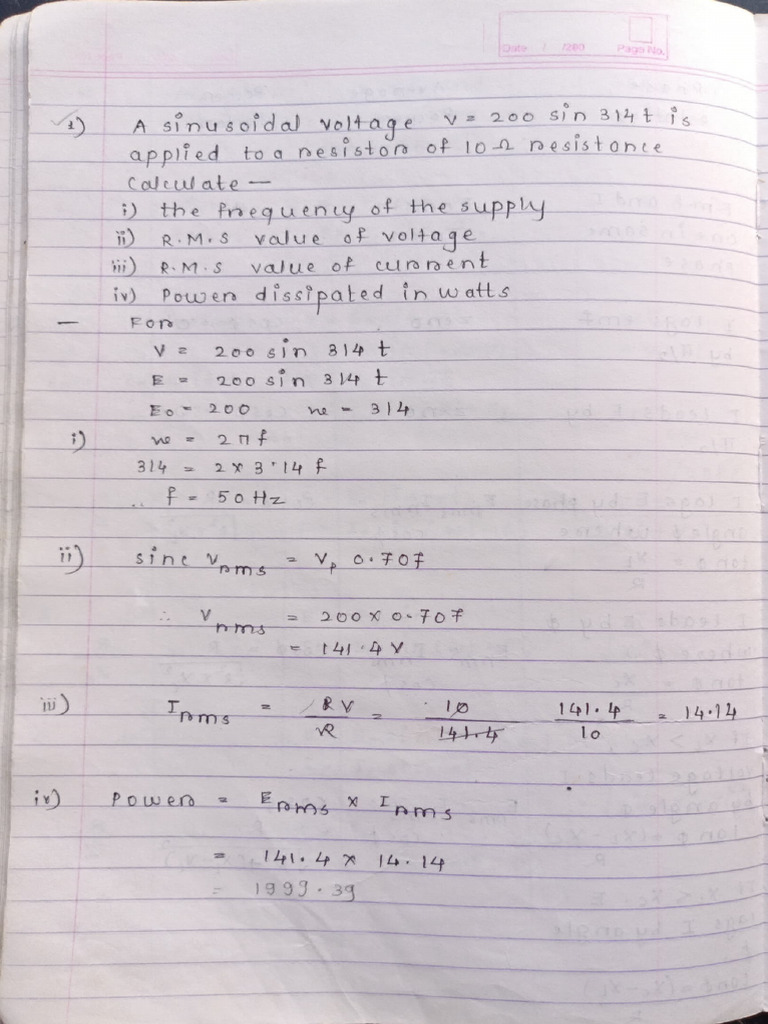 Date / /200 Page No.
1) A sinusoidal voltage V = 200 sin 314 t is
applied to a resistor of 10 Ω resistance
Calculate —
i) the frequency of the supply
ii) R.M.S value of voltage
iii) R.M.S value of current
iv) Power dissipated in watts
— For
V = 200 sin 314 t
E = 200 sin 314 t
E₀ = 200 w = 314
i) w = 2πf
314 = 2 × 3.14 f
∴ f = 50 Hz
ii) sinc V rms = Vp 0.707
∴ V rms = 200 × 0.707
= 141.4 V
iii) I rms = V/R = 10/141.4 141.4/10 = 14.14
iv) Power = E rms × I rms
= 141.4 × 14.14
= 1999.39